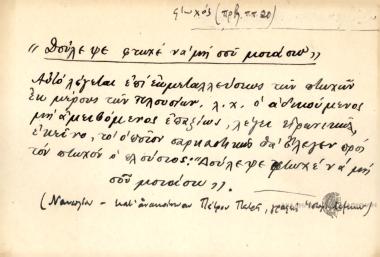 φτωχός (πρβ. ππ 20)
« Δούλευε φτωχέ να μή σού μοιάσω »
Αυτό λέγεται επί εκμεταλλεύσεως τών πτωχών
εκ μέρους τών πλουσίων. λ.χ. ο αδικούμενος
μή αμειβόμενος επαξίως, λέγει ειρωνικώς
εκείνο, τό οποίον σαρκαστικώς θά έλεγεν πρός
τόν πτωχόν ο πλούσιος: "Δούλευε φτωχέ νά μή
σού μοιάσω".
(Ναυπλίου – κατ' ανακοίνωσιν Πέτρου